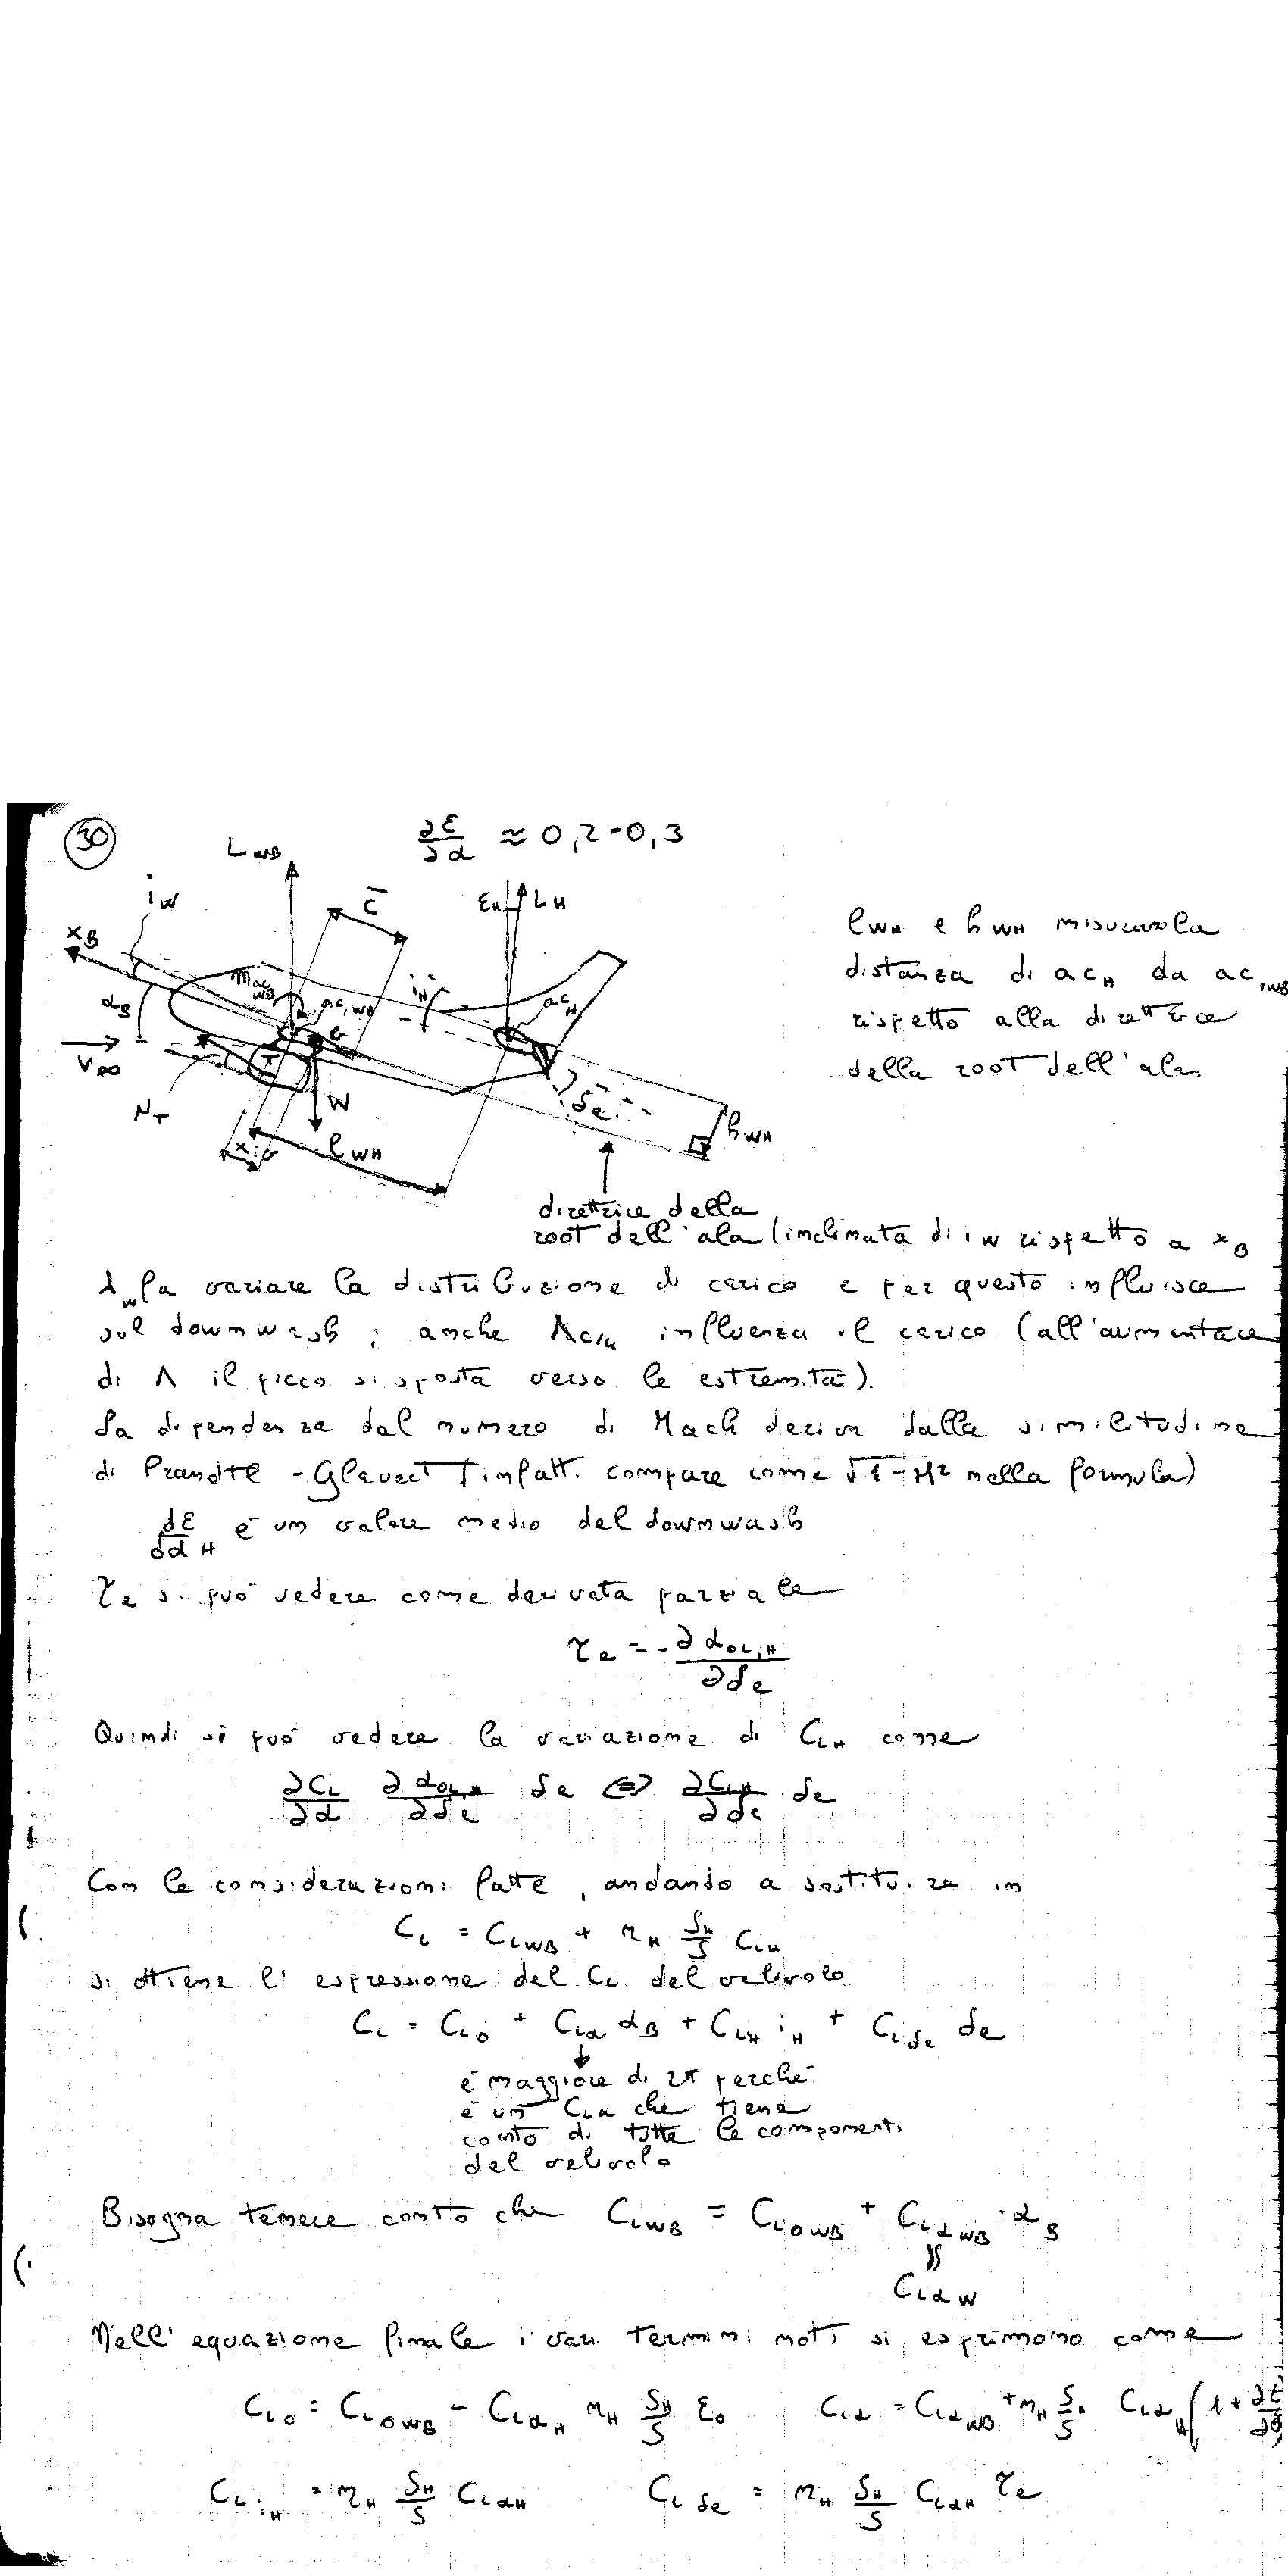 30
∂ε/∂α ≈ 0,2-0,3
L_WB
i_W
c̄
ε_H L_H
x_B
M_ac_WB
ac_WH
i_H
ac_H
α_B
G
V_∞
T
μ_T
W
δ_e
h_WH
x_G
l_WH
l_WH e h_WH misurano la
distanza di ac_H da ac_WB
rispetto alla direttrice
della root dell'ala.
direttrice della
root dell'ala (inclinata di i_W rispetto a x_B
λ_W fa variare la distribuzione di carico e per questo influisce
sul downwash; anche Λ_c/4 influenza il carico (all'aumentare
di Λ il picco si sposta verso le estremità).
La dipendenza dal numero di Mach deriva dalla similitudine
di Prandtl-Glavert (infatti compare come √1-M² nella formula)
dε/dα_H è un valore medio del downwash
τ_e si può vedere come derivata parziale
τ_e = - ∂α_0L,H/∂δ_e
Quindi si può vedere la variazione di C_LH come
∂C_L/∂α ∂α_0L,H/∂δ_e δ_e ⇔ ∂C_LH/∂δ_e δ_e
Con le considerazioni fatte, andando a sostituire in
C_L = C_LWB + η_H S_H/S C_LH
si ottiene l'espressione del C_L del velivolo
C_L = C_L0 + C_Lα α_B + C_LH i_H + C_Lδe δ_e
è maggiore di 2π perché
è un C_Lα che tiene
conto di tutte le componenti
del velivolo
Bisogna tenere conto che C_LWB = C_L0WB + C_LαWB · α_B
C_LαW
Nell'equazione finale i vari termini noti si esprimono come
C_L0 = C_L0WB - C_LαH η_H S_H/S ε_0 C_Lα = C_LαWB + η_H S_H/S C_LαH (1 + ∂ε/∂α
C_LiH = η_H S_H/S C_LαH C_Lδe = η_H S_H/S C_LαH τ_e